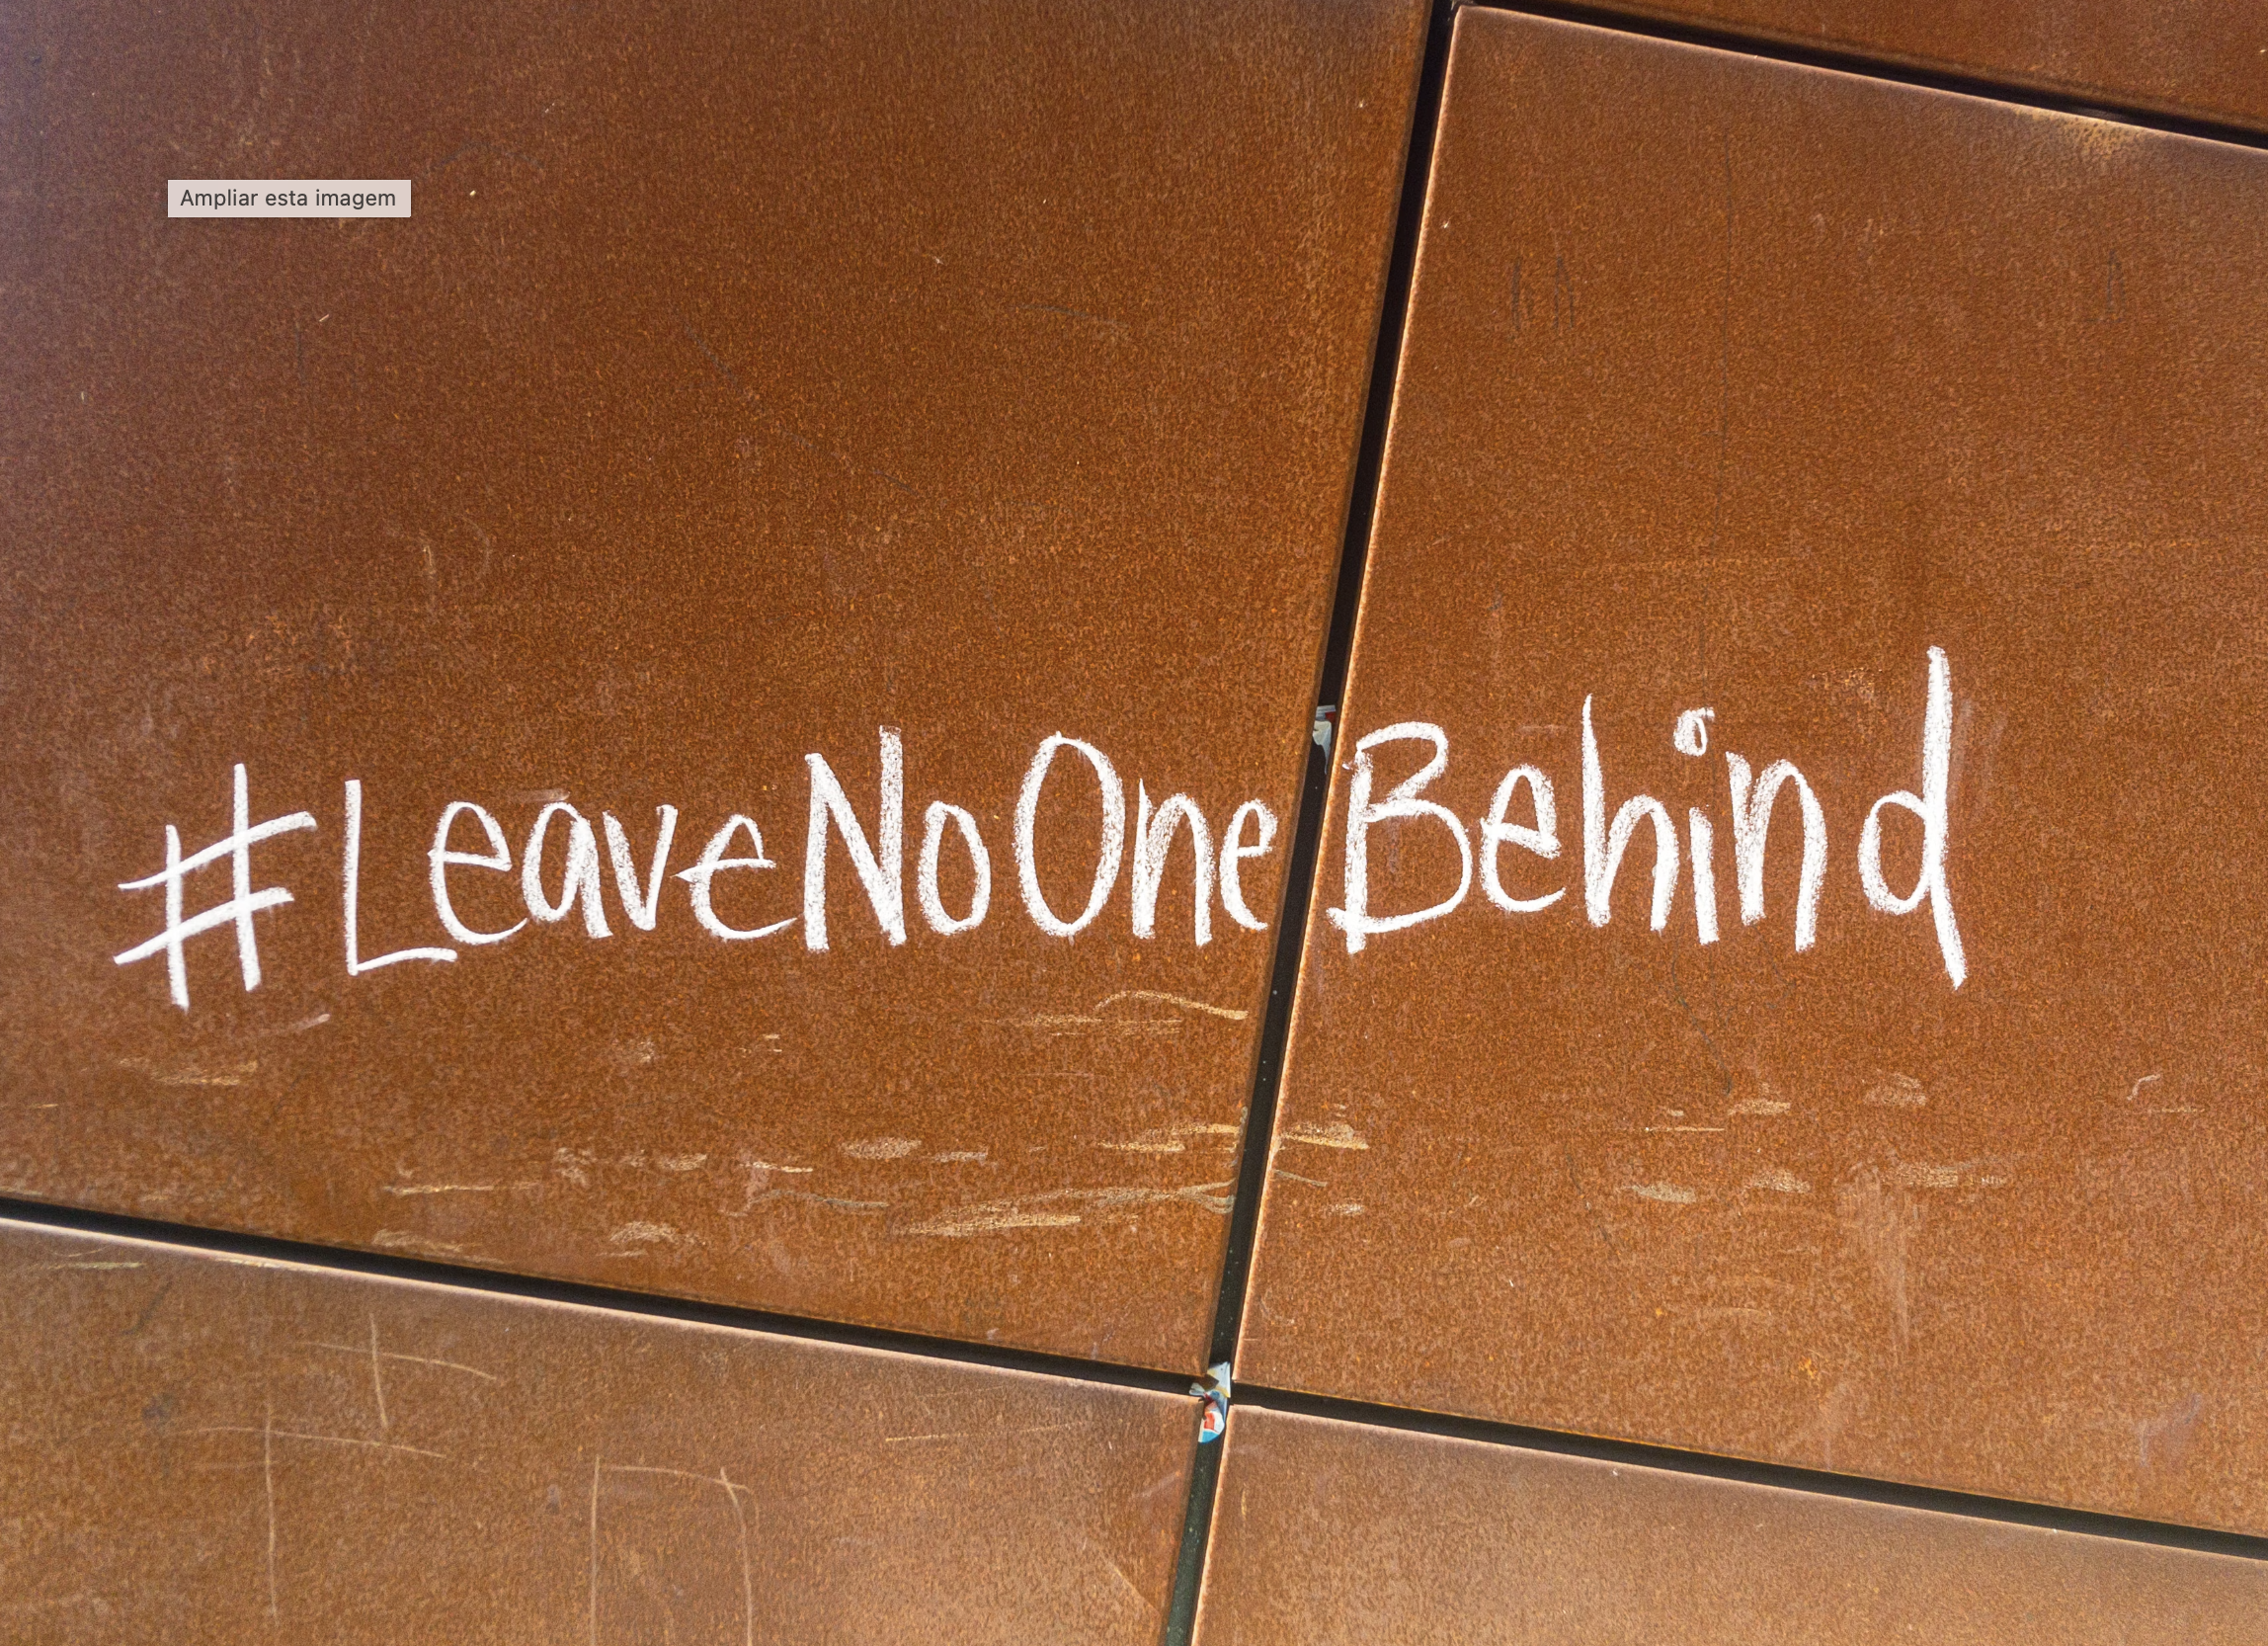 Ampliar esta imagem
#LeaveNoOneBehind